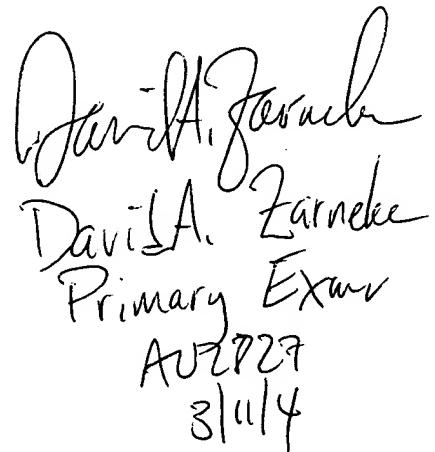 David A. Zarneke
David A. Zarneke
Primary Exmr
AU2827
3/11/4